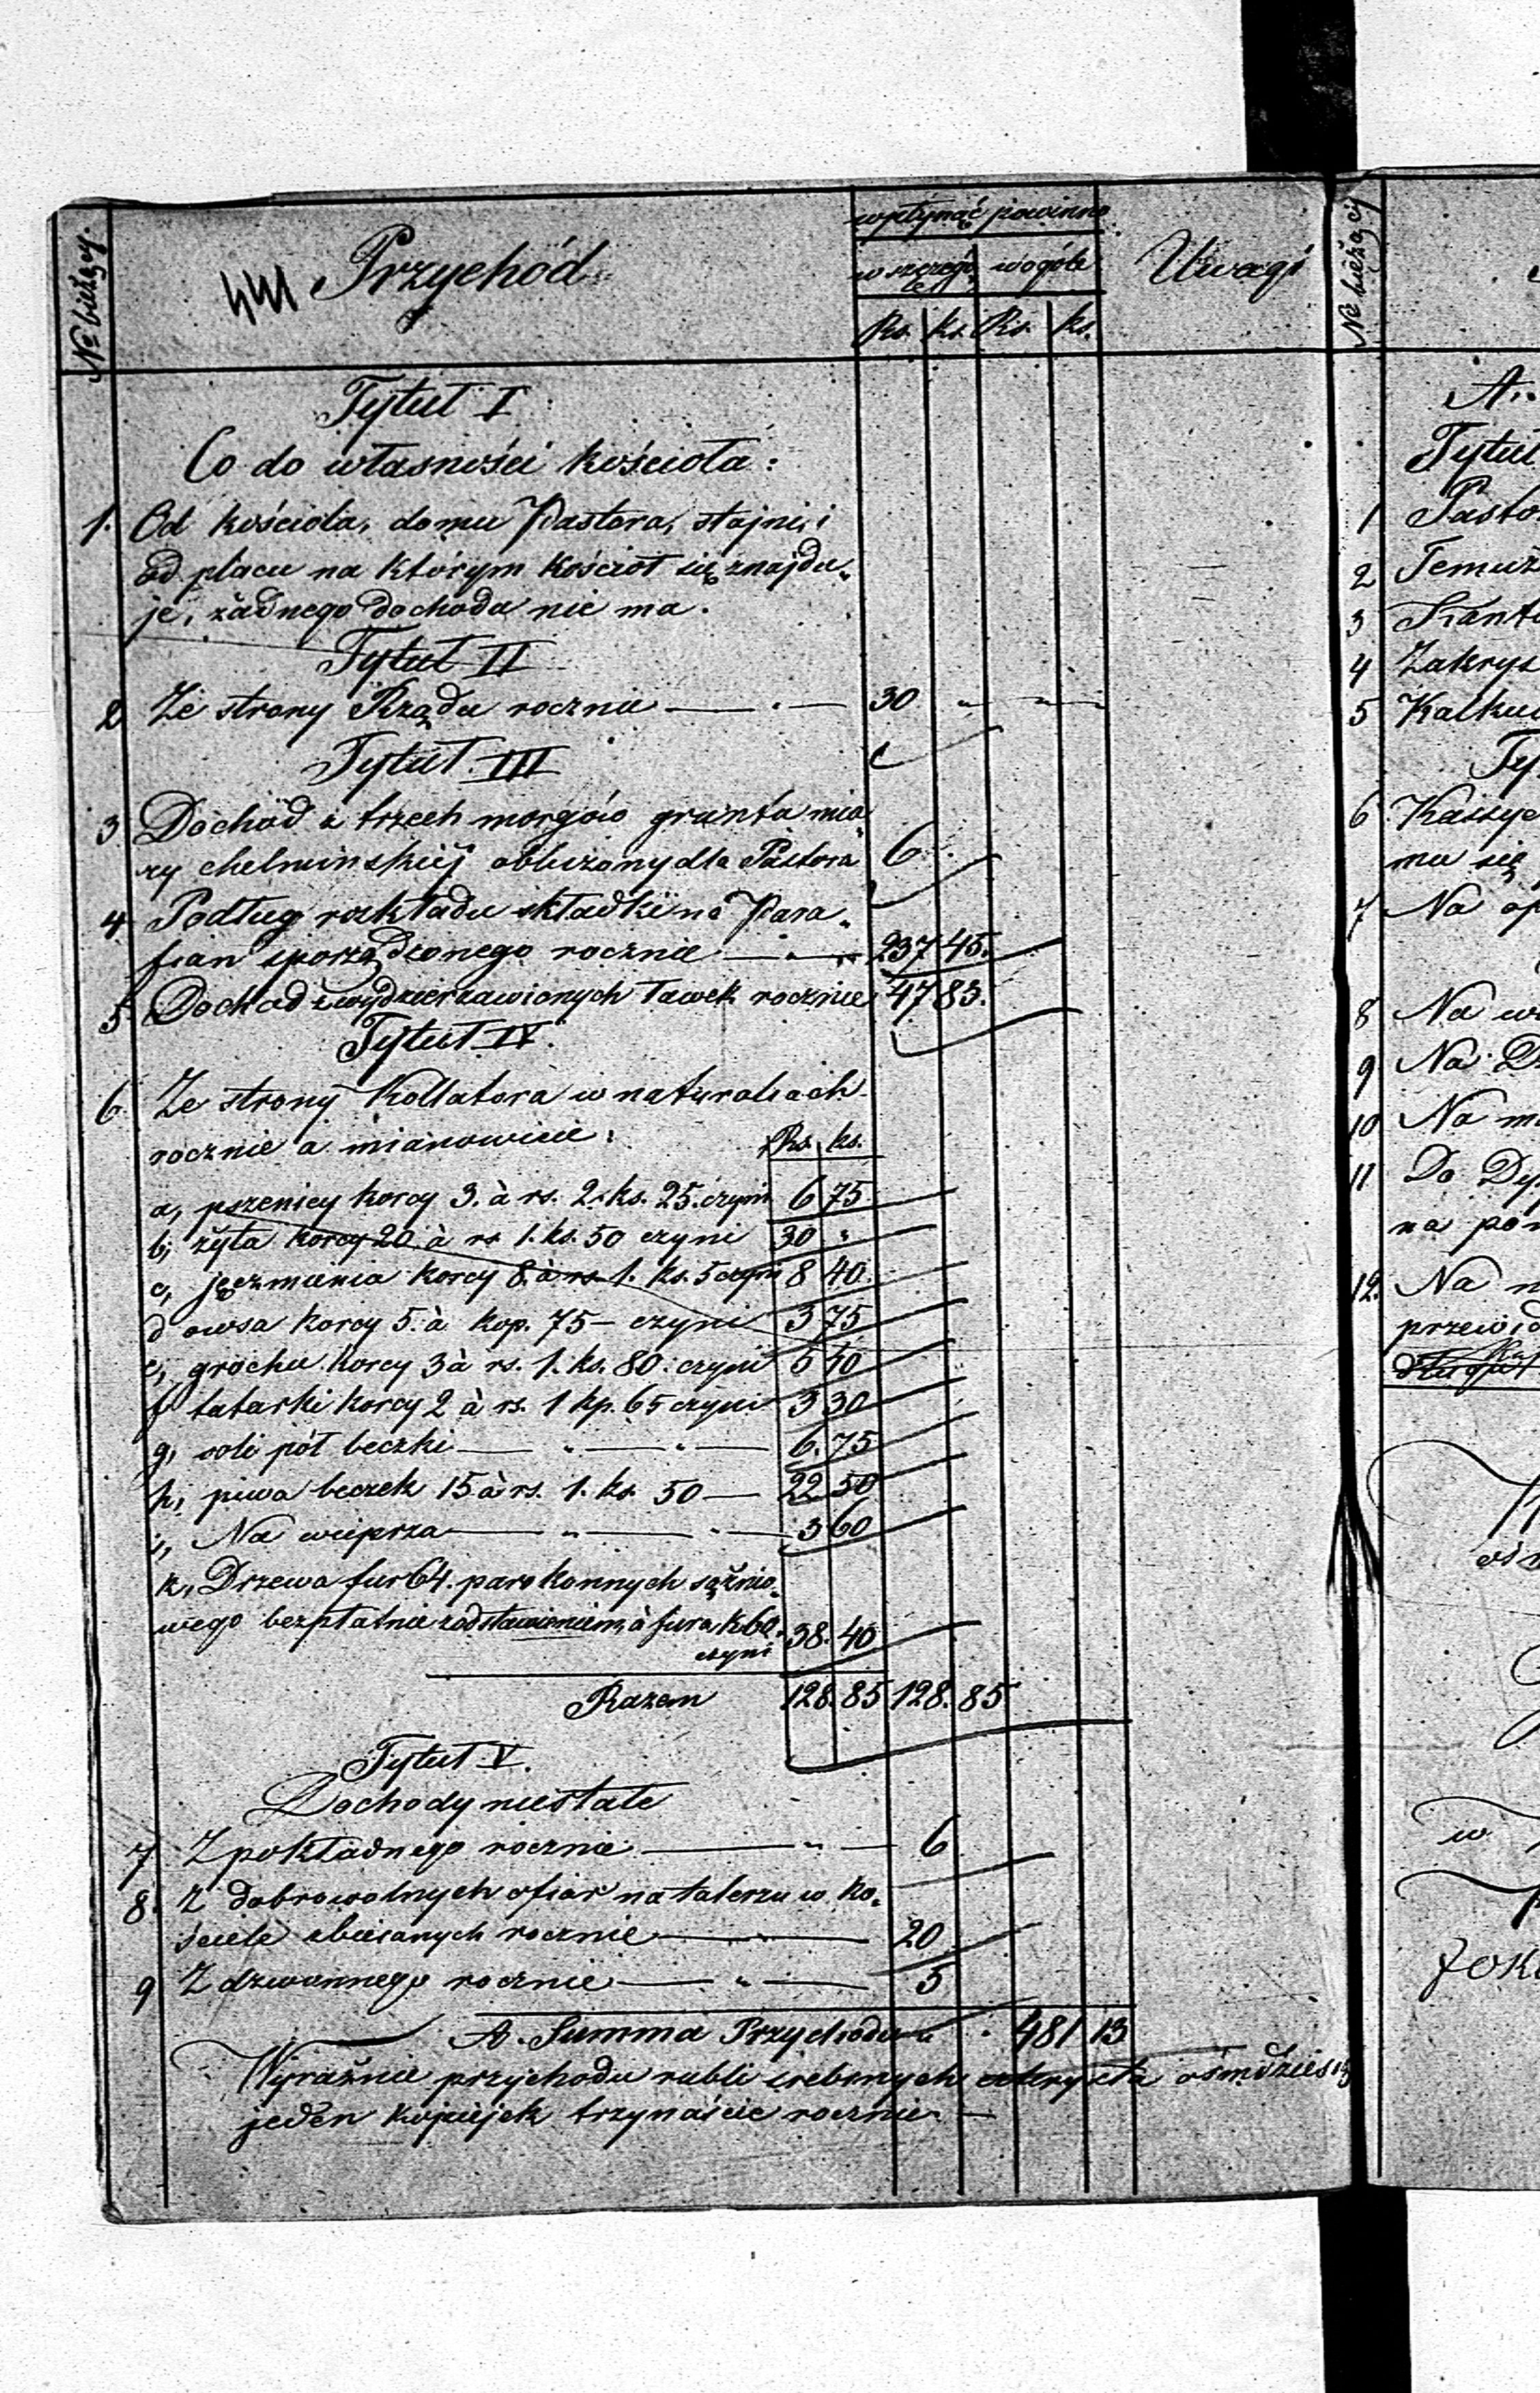 No bieżący.
Przychód
wpłynąć powinno
w szczegó. w ogóle
Rs. ks. Rs. ks.
Uwagi
Tytuł I
Co do własności kościoła:
1. Od kościoła, domu Pastora, stajni, i
od placu na którym kościół się znajdu„
je, żadnego dochodu nie ma.
Tytuł II
2 Ze strony Rządu rocznie — „ — 30 „ „ „
Tytuł III
3 Dochód z trzech morgów gruntu mia„
ry chełmińskiéj obliczony dla Pastora 6
4 Podług rozkładu składki na Para„
fian sporządzonego rocznie — „ — 237 45.
5 Dochód z wydzierzawionych ławek rocznie 47 83.
Tytuł IV.
6. Ze strony Kollatora w naturaliach
rocznie a mianowicie: Rs. ks.
a, pszenicy korcy 3. à rs. 2. ks. 25. czyni 6 75
b, żyta korcy 20 à rs 1. ks. 50 czyni 30 „
c, jęczmienia korcy 8. à rs 1. ks. 5 czyni 8 40.
d owsa korcy 5. à kop. 75 — czyni 3 75
e, grochu korcy 3 à rs. 1. ks. 80. czyni 5 40
f tatarki korcy 2 à rs. 1 kp. 65 czyni 3 30
g, soli pół beczki — „ — „ — 6. 75
h, piwa beczek 15 à rs. 1. ks. 50 — 22 50
i, Na wieprza — „ — „ — 3 60
k, Drzewa fur 64. parokonnych sążnio„
wego bezpłatnie z odstawieniem, à fura k 60.
czyni 38. 40
Razem 128. 85 128. 85
Tytuł V.
Dochody niestałe
7 Z pokładnego rocznie — „ — 6
8. Z dobrowolnych ofiar na talerzu w ko„
ściele zbieranych rocznie — 20
9 Z dzwonnego rocznie — „ — 5
A. Summa Przychodu „ . 481 13
Wyraźnie przychodu rubli srebrnych czterysta ośmdziesiąt
jeden kopiejek trzynaście rocznie —
No bieżący
A.
Tytuł
1 Pasto
2 Temuż
3 Kanto
4 Zakrys
5 Kalku
Ty
6
mu się
7 Na op
8 Na w
9 Na D
10 Na m
11 Do Dy
na po
12. Na n
przewid
w